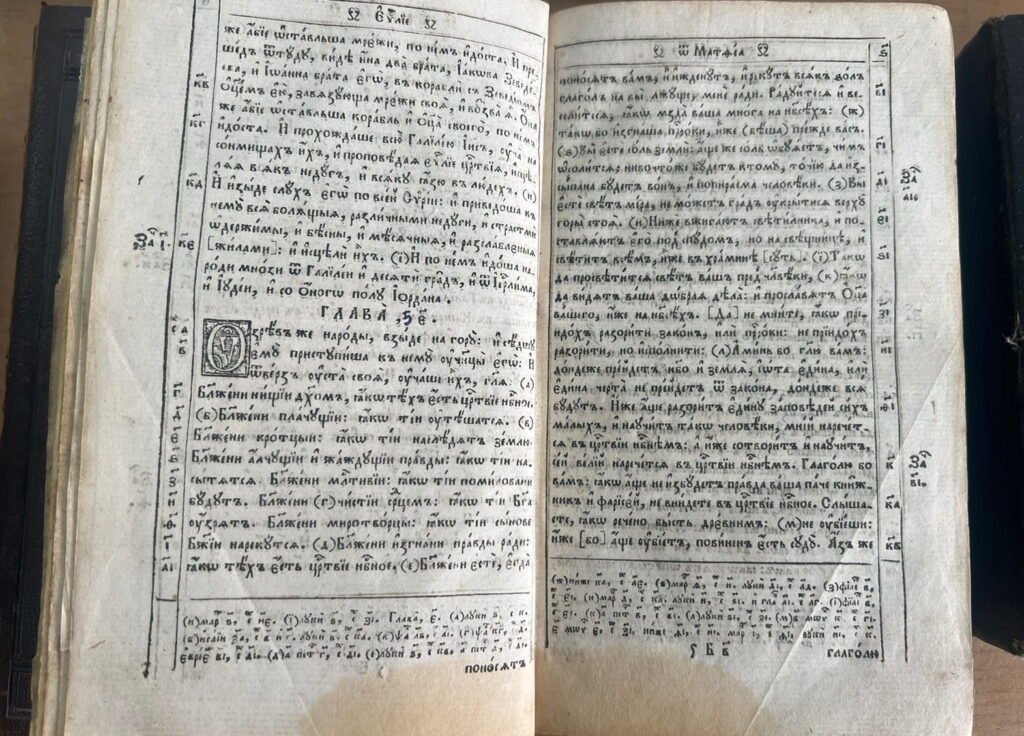 Ѡ Еѵⷢ҇лїе Ѡ
же а҆бїе ѡ҆ста́вльша мре́жи, по не́мъ и҆до́ста. И҆ пре-
ше́дъ ѿтꙋ́дꙋ, ви́дѣ и҆́на два̀ бра̑та, І҆а́кѡва Зеведе-
ева, и҆ І҆ѡа́нна бра́та є҆гѡ̀, въ корабли̑ съ Зеведе́омъ
ѻ҆ц҃е́мъ є҆ю̀, завѧзꙋ́юща мре́жи своѧ̑, и҆ воззва̀ ѧ҆̀. Ѻ҆на́
же а҆бїе ѡ҆ста́вльша кора́бль и҆ ѻ҆ц҃а̀ своего̀, по не́мъ
и҆до́ста. И҆ прохожда́ше всю̀ Галїле́ю І҆и҃съ, ᲂу҆ча̀ на
со́нмищахъ и҆́хъ, и҆ проповѣ́даѧ є҆ѵⷢ҇лїе црⷭ҇твїѧ, и҆сцѣ-
лѧ́ѧ всѧ́къ недꙋ́гъ, и҆ всѧ́кꙋ ꙗ҆́зю въ лю́дехъ. (и)
И҆ и҆зы́де слꙋ́хъ є҆гѡ̀ по все́й Сѵрі́и: и҆ приведо́ша къ
немꙋ̀ всѧ̑ болѧ́щыѧ, разли́чными недꙋ́ги, и҆ страстьмѝ
ѡ҆держи̑мы, и҆ бѣ̑сны, и҆ мѣ́сѧчныѧ, и҆ разсла́бленныѧ
[жи́лами]: и҆ и҆сцѣлѝ и҆́хъ. (і)И҆ по не́мъ и҆до́ша на-
ро́ди мно́зи ѿ Галїле́и и҆ десѧтѝ гра̑дъ, и҆ ѿ І҆ерⷭ҇ли́ма,
и҆ І҆ꙋде́и, и҆ со ѻ҆́ногѡ по́лꙋ І҆ѻрда́на.
ГЛАВА̀, Е҃.
Оу҆зрѣ́въ же наро́ды, взы́де на горꙋ̀: и҆ сѣ́дшꙋ
є҆мꙋ̀ пристꙋпи́ша къ немꙋ̀ ᲂу҆чн҃цы̀ є҆гѡ̀: И҆
ѿве́рзъ ᲂу҆ста̀ своѧ̑, ᲂу҆ча́ше и҆́хъ, гл҃ѧ: (а)
Блаже́ни ни́щїи дх҃омъ, ꙗ҆́кѡ тѣ́хъ є҆́сть црⷭ҇твїе нбⷭ҇ное.
(б)Блаже́ни пла́чꙋщїи: ꙗ҆́кѡ ті́и ᲂу҆тѣ́шатсѧ. (в)
Блаже́ни кро́тцыи: ꙗ҆́кѡ ті́и наслѣ́дѧтъ зе́млю.
Блаже́ни а҆́лчꙋщїи и҆ жа́ждꙋщїи пра́вды: ꙗ҆́кѡ ті́и на-
сы́тѧтсѧ. Блаже́ни млⷭ҇тивїи: ꙗ҆́кѡ ті́и поми́ловани
бꙋ́дꙋтъ. Блаже́ни (г)чи́стїи срⷣцемъ: ꙗ҆́кѡ ті́и Бг҃а
ᲂу҆́зрѧтъ. Блаже́ни миротво́рцы: ꙗ҆́кѡ ті́и сы́нове
Бж҃їи нареку́тсѧ. (д)Блаже́ни и҆згна́ни пра́вды ра́ди:
ꙗ҆́кѡ тѣ́хъ є҆́сть црⷭ҇твїе нбⷭ҇ное. (є)Блаже́ни є҆стѐ, є҆гда̀
поно́сѧтъ
Ѡ ѿ Матѳе́а Ѡ
поно́сѧтъ ва́мъ, и҆ и҆жденꙋ́тъ, и҆ рекꙋ́тъ всѧ́къ зо́лъ
глаго́лъ на вы̀ лжꙋ́ще, менє̀ ра́ди. Ра́дꙋйтесѧ и҆ ве-
сели́тесѧ, ꙗ҆́кѡ мзда̀ ва́ша мно́га на нбⷭ҇ѣ́хъ: (ж)
та́кѡ бо и҆згна́ша прⷪ҇ро́ки, и҆́же (бѣ́ша) пре́жде ва́съ.
(ѕ)Вы̀ є҆стѐ со́ль землѝ: а҆́ще же со́ль ѡ҆бꙋѧ́етъ, чи́мъ
ѡ҆соли́тсѧ; ни во что́же бꙋ́детъ ктомꙋ̀, то́чїю да и҆з-
сы́пана бꙋ́детъ во́нъ, и҆ попира́ема человѣ̑ки. (з)Вы̀
є҆стѐ свѣ́тъ мі́ра, не мо́жетъ гра́дъ ᲂу҆кры́тисѧ верхꙋ̀
горы̀ стоѧ̀. (и)Ни́же вжига́ютъ свѣти́лника, и҆ по-
ставлѧ́ютъ є҆го̀ под̾ спꙋ́домъ, но на свѣ́щницѣ, и҆
свѣ́титъ всѣ̑мъ, и҆̀же въ хра́минѣ [сꙋ́ть]. (і)Та́кѡ
да просвѣти́тсѧ свѣ́тъ ва́шъ пред̾ чл҃вѣ́ки, (к)ꙗ҆́кѡ
да ви́дѧтъ ва́ша дѡ́браѧ дѣла̀: и҆ просла́вѧтъ Ѻ҆ц҃а̀
ва́шего, и҆́же на нбⷭ҇ѣ́хъ. [Да] не мни́те, ꙗ҆́кѡ прї-
идо́хъ разори́ти зако́нъ, и҆лѝ прⷪ҇ро́ки: не прїидо́хъ
разори́ти, но и҆спо́лнити: (л)А҆ми́нь бо гл҃ю ва́мъ:
до́ндеже пре́йдетъ нб҃о и҆ землѧ̀, і҆ѡ́та є҆ди́на, и҆лѝ
є҆ди́на черта̀ не пре́йдетъ ѿ зако́на, до́ндеже всѧ̑
бꙋ́дꙋтъ. И҆́же а҆́ще разори́тъ є҆ди́нꙋ за́повѣдей си́хъ
ма́лыхъ, и҆ наꙋчи́тъ та́кѡ человѣ́ки, мні́й нарече́т-
сѧ въ црⷭ҇твїи нбⷭ҇нѣмъ: а҆ и҆́же сотвори́тъ и҆ наꙋчи́тъ,
се́й ве́лїй нарече́тсѧ въ црⷭ҇твїи нбⷭ҇нѣмъ. Глаго́лю бо
ва́мъ: ꙗ҆́кѡ а҆́ще не и҆збꙋ́детъ пра́вда ва́ша па́че кни́ж-
никъ и҆ фарїсе́й, не вни́дете въ црⷭ҇твїе нбⷭ҇ное. Слы́ша-
сте, ꙗ҆́кѡ рече́но бы́сть дре́внимъ: (м)не ᲂу҆бїе́ши:
и҆́же [бо] а҆́ще ᲂу҆бїе́тъ, пови́ненъ є҆́сть сꙋдꙋ̀. А҆́зъ же
глаго́лю